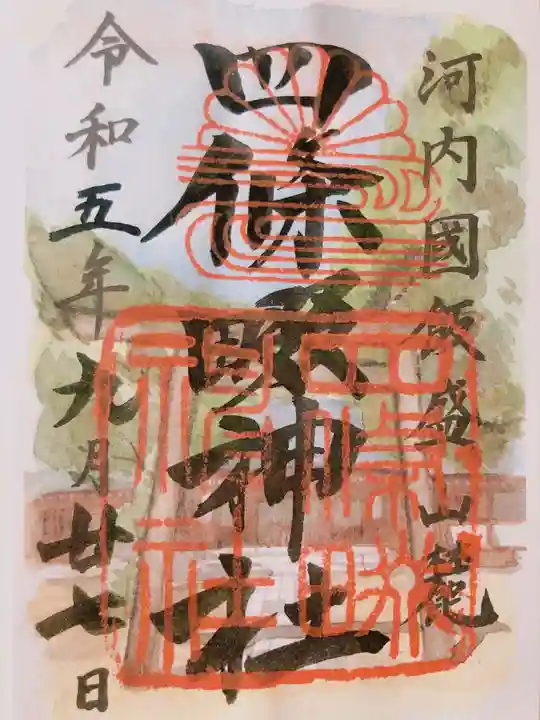 河内國飯盛山麓
四條畷神社
令和五年九月廿七日
四條畷
神社